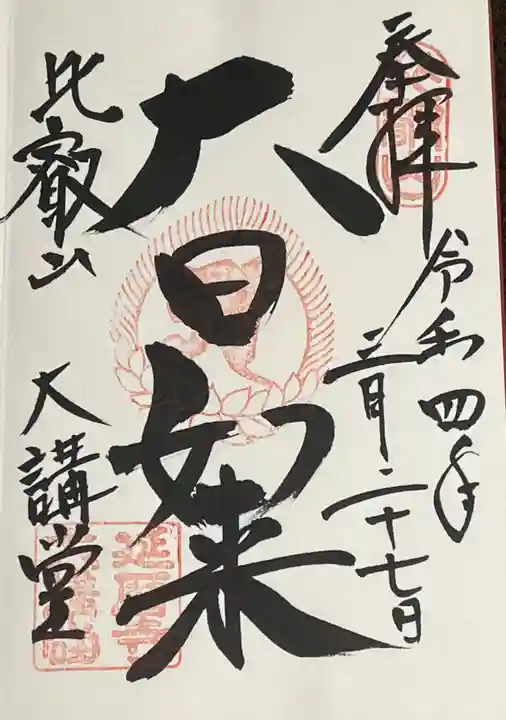 奉拝
令和四年
三月二十七日
大日如来
比叡山 大講堂
延暦寺